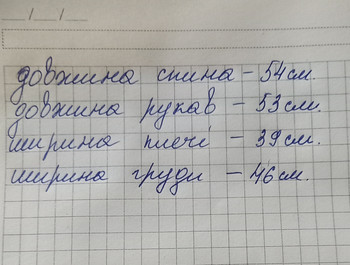 довжина спина - 54 см.
довжина рукав - 53 см.
ширина плечі - 39 см.
ширина груди - 46 см.